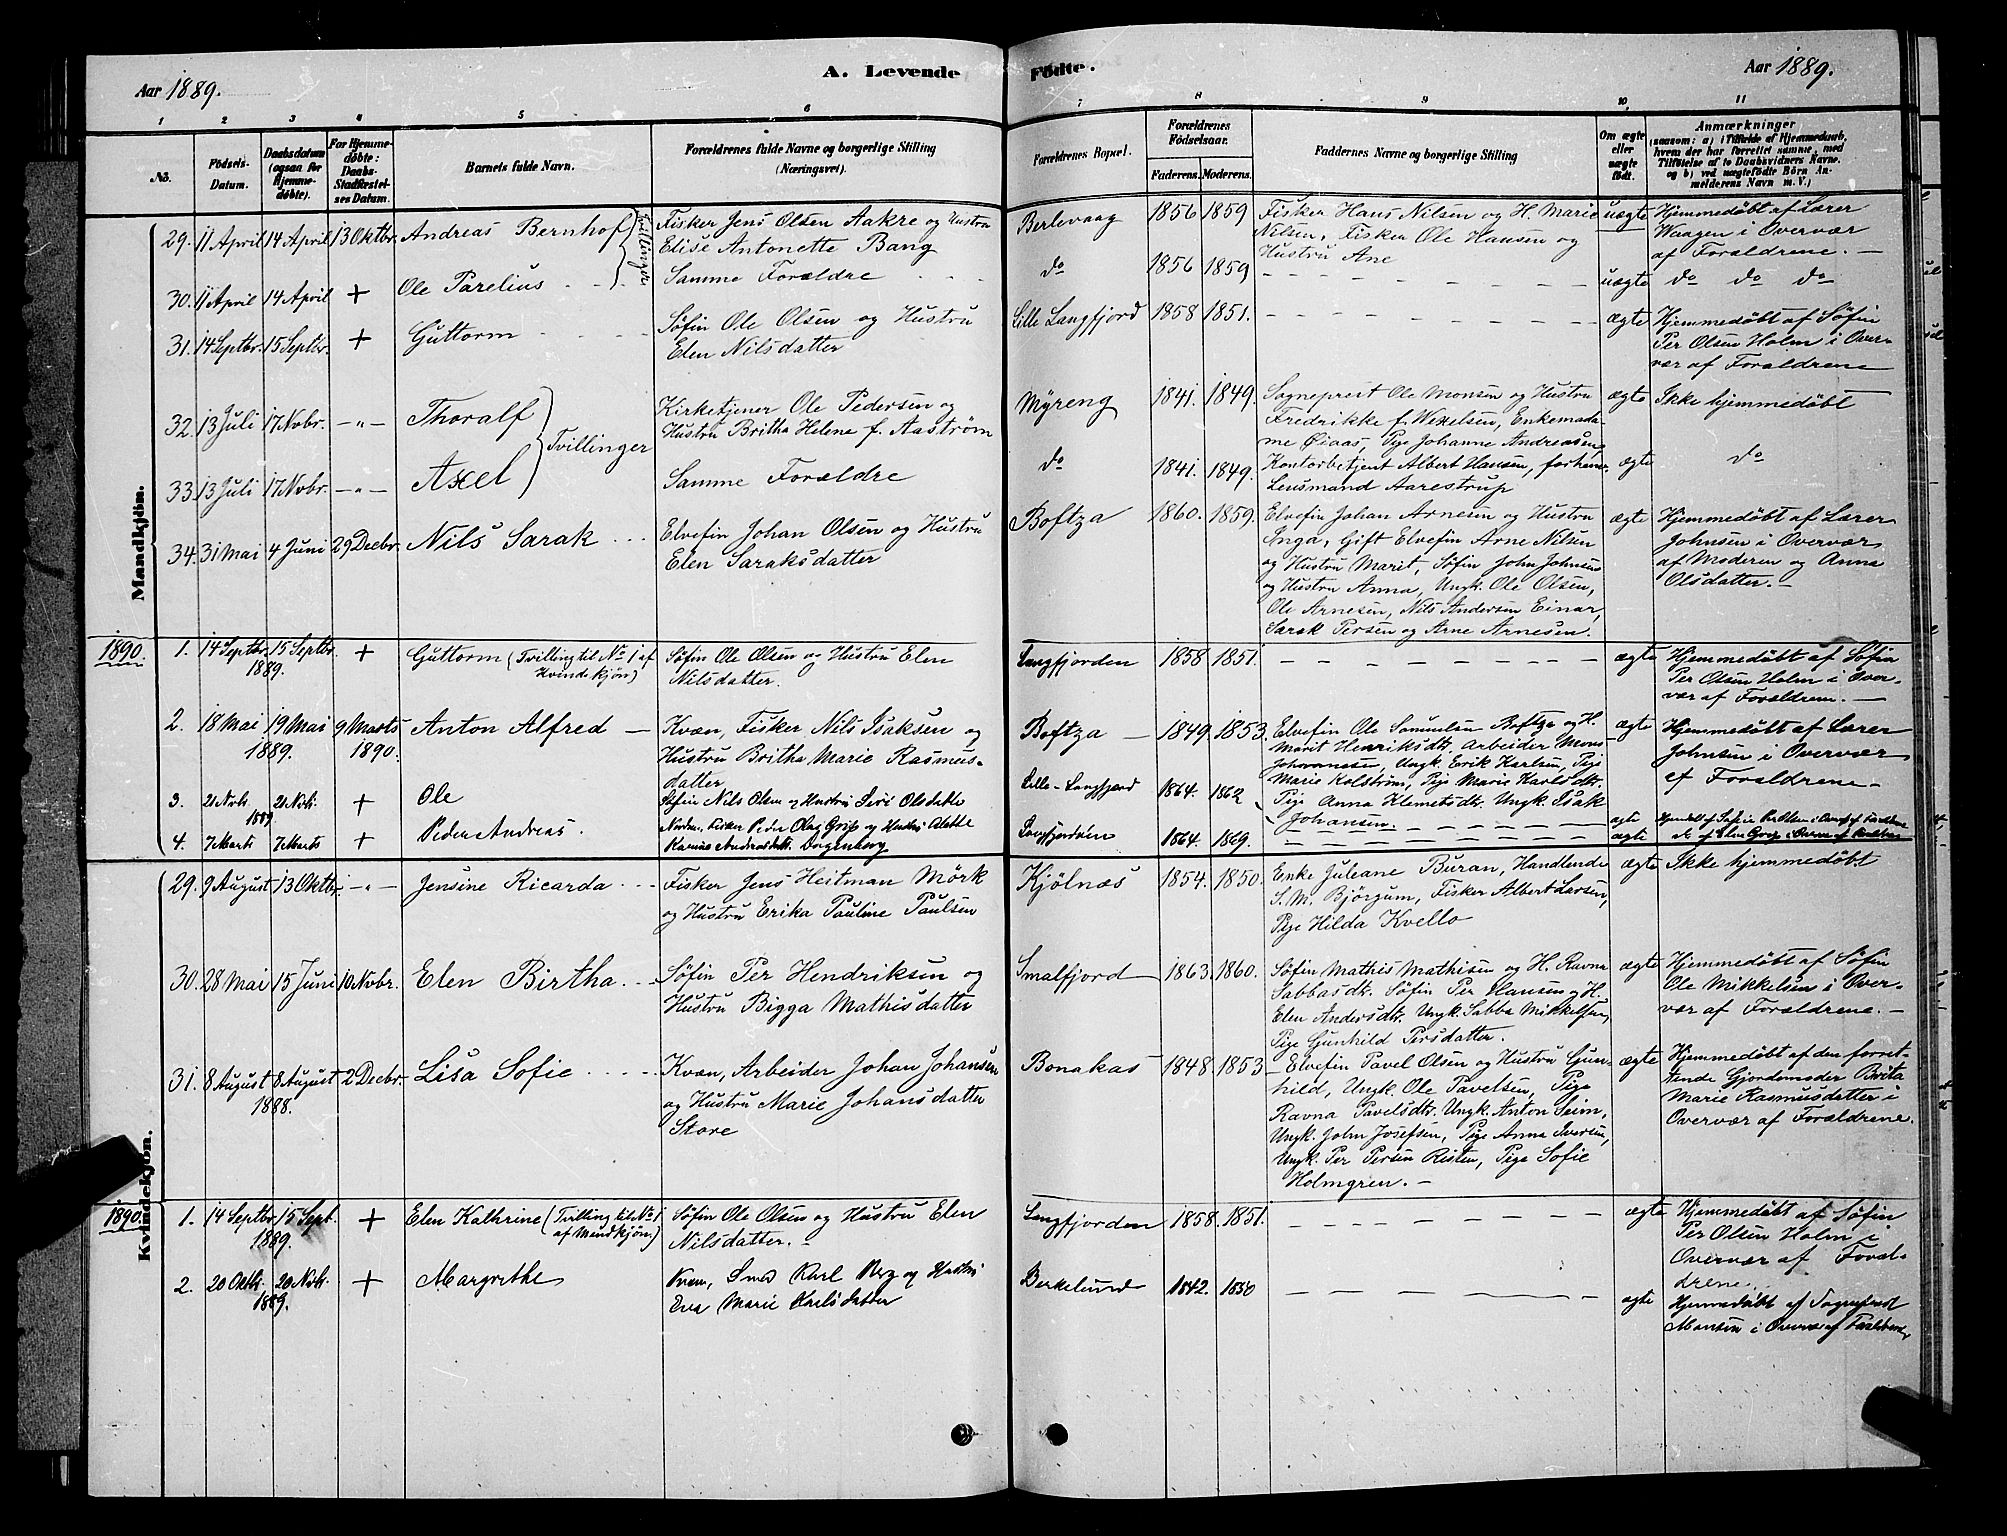 Aar 1889.
A. Levende
Fødte.
Aar 1889.
1 2 3 4 5 6 7 8 9 10 11
No.
Fødsels-
Datum.
Daabsdatum
(ogsaa for
Hjemme-
døbte).
For Hjemme-
døbte:
Daabs-
Stadfæstel-
ses Datum.
Barnets fulde Navn.
Forældrenes fulde Navne og borgerlige Stilling
(Næringsvei).
Forældrenes Bopæl.
Forældrenes
Fødselsaar.
Faderens. Moderens.
Faddernes Navne og borgerlige Stilling
Om ægte
eller
uægte
født.
Anmærkninger
(saasom: a) i Tilfælde af Hjemmedaab,
hvem der har forrettet samme, med
Tilføielse af to Daabsvidners Navne.
og b) ved uægtefødte Børn An-
melderens Navn m. V.)
Mandkjön.
29. 11 April 14 April 13 Oktbr. Andreas Bernhof Tvillinger
Fisker Jens Olsen Aakre og Hustru
Elise Antonette Bang
Berlevaag 1856 1859
Fisker Hans Nilsen og H. Marie
Nilsen, Fisker Ole Hansen og
Hustru Ane
uægte
Hjemmedøbt af Lærer
Waagen i Overvær
af Forældrene. —
30. 11 April 14 April + Ole Parelius
Samme Forældre
do 1856 1859
uægte do do do
31. 14 Septbr. 15 Septbr. + Guttorm
Søfin Ole Olsen og Hustru
Elen Nilsdatter
Lille Langfjord 1858 1851.
ægte
Hjemmedøbt af Søfin
Per Olsen Holm i Over-
vær af Forældrene
32. 13 Juli 17 Novbr. —"— Thoralf
Tvillinger
Kirketjener Ole Pedersen og
Hustru Britha Helene f. Aaström
Myreng 1841. 1849.
Sogneprest Ole Monsen og Hustru
Fredrikke f. Wexelsen, Enkemada-
me Øiaas, Pige Johanne Andreasen,
ægte Ikke hjemmedøbt
33. 13 Juli 17 Novbr. —"— Axel
Samme Forældre
do 1841. 1849.
Kontorbetjent Albert Hansen, forhen.
Lensmand Aarestrup
ægte do
34. 31 Mai 4 Juni 29 Decbr. Nils Sarak
Elvefin Johan Olsen og Hustru
Elen Saraksdatter
Boftza 1860. 1859.
Elvefin Johan Arnesen og Hustru
Inga, Gift Elvefin Arne Nilsen
og Hustru Marit, Søfin John Johnsen
og Hustru Anna, Ungk. Ole Olsen,
Ole Arnesen, Nils Andersen Einar,
Sarak Persen og Arne Arnesen.
ægte
Hjemmedøbt af Lærer
Johnsen i Overvær
af Moderen og Anna
Olsdatter. —
1890.
1. 14 Septbr. 15 Septbr. 1889. + Guttorm (Tvilling til No 1 af
Kvindekjön)
Søfin Ole Olsen og Hustru Elen
Nilsdatter.
Langfjorden 1858 1851.
ægte
Hjemmedøbt af Søfin
Per Olsen Holm i Over-
vær af Forældrene. —
2. 18 Mai 19 Mai 1889. 9 Marts 1890. Anton Alfred
Kvæn, Fisker Nils Isaksen og
Hustru Britha Marie Rasmus-
datter
Boftza — 1849. 1853.
Elvefin Ole Samuelsen Boftza og H.
Marit Henriksdtr. Arbeider Mons
Johannesen, Ungk. Erik Karlsen, Pige
Marie Kolström, Pige Marie Karlsdtr.
Pige Anna Klemetsdtr. Ungk. Isak
Johansen
ægte
Hjemmedøbt af Lærer
Johnsen i Overvær
af Forældrene —
3. 21 Novbr. 21 Novbr. 1889 + Ole
Søfin Nils Olsen og Hustru Siri Olsdatter
Lille-Langfjord 1864. 1862
ægte
4. 7 Marts 7 Marts + Peder Andreas.
Langfjorden 1864. 1869.
ægte
Kvindekjön.
29. 9 August 13 Oktbr. —"— Jensine Ricarda
Fisker Jens Heitman Mörk
og Hustru Erika Pauline Paulsen
Kjölnæs 1854. 1850.
Enke Juleane Buran, Handlende
S. M. Björgum, Fisker Albert Larsen,
Pige Hilda Kvello
ægte Ikke hjemmedøbt
30. 28 Mai 15 Juni 10 Novbr. Elen Birtha
Søfin Per Hendriksen og
Hustru Bigga Mathisdatter
Smalfjord 1863. 1860.
Søfin Mathis Mathisen og H. Ravna
Sabbasdtr. Søfin Per Hansen og H.
Elen Andersdtr. Ungk. Sabba Mikkelsen,
Pige Gunhild Persdatter.
ægte
Hjemmedøbt af Søfin
Ole Mikkelsen i Over-
vær af Forældrene. —
31. 8 August 8 August 1888. 2 Decbr. Lisa Sofie
Kvæn, Arbeider Johan Johansen
og Hustru Marie Johansdatter
Store
Bonakas 1848. 1853
Elvefin Pavel Olsen og Hustru Gun-
hild, Ungk. Ole Pavelsen, Pige
Ravna Pavelsdtr. Ungk. Anton Seim,
Ungk. John Josefsen, Pige Anna Iversen,
Ungk. Per Persen Risten, Pige Sofie
Holmgren. —
ægte
Hjemmedøbt af den forret-
tende Gjordemoder Brita
Marie Rasmusdatter i
Overvær af Forældrene.
1890.
1. 14 Septbr. 15 Sept. 1889. + Elen Kathrine (Tvilling til No 1
af Mandkjön.)
Søfin Ole Olsen og Hustru Elen
Nilsdatter. —
Langfjorden 1858. 1851.
ægte
Hjemmedøbt af Søfin
Per Olsen Holm i
Overvær af Foræl-
drene.
2. 20 Oktb. 20 Novb. 1889. + Margrethe
Kvæn, Smed Karl Berg og Hustru
Eva Marie Karlsdatter
Berkelund 1842. 1850
ægte
Hjemmedøbt af Sogneprest
Monsen i Overvær af Forældrene